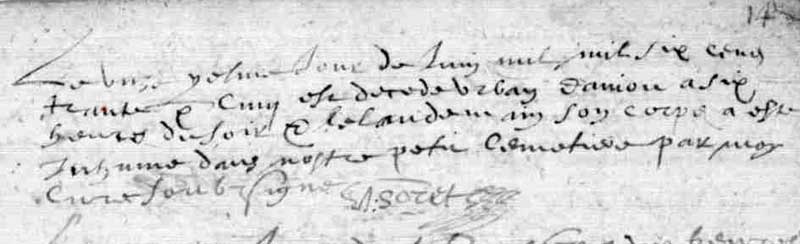 14
Le unziesme jour de Juin mil mil six cens
trante & cinq est decede Urban Daniou a six
heures du soir & le landemain son corps a este
Inhume dans nostre petit Cemetiere par moy
Cure soubsigne
Soret